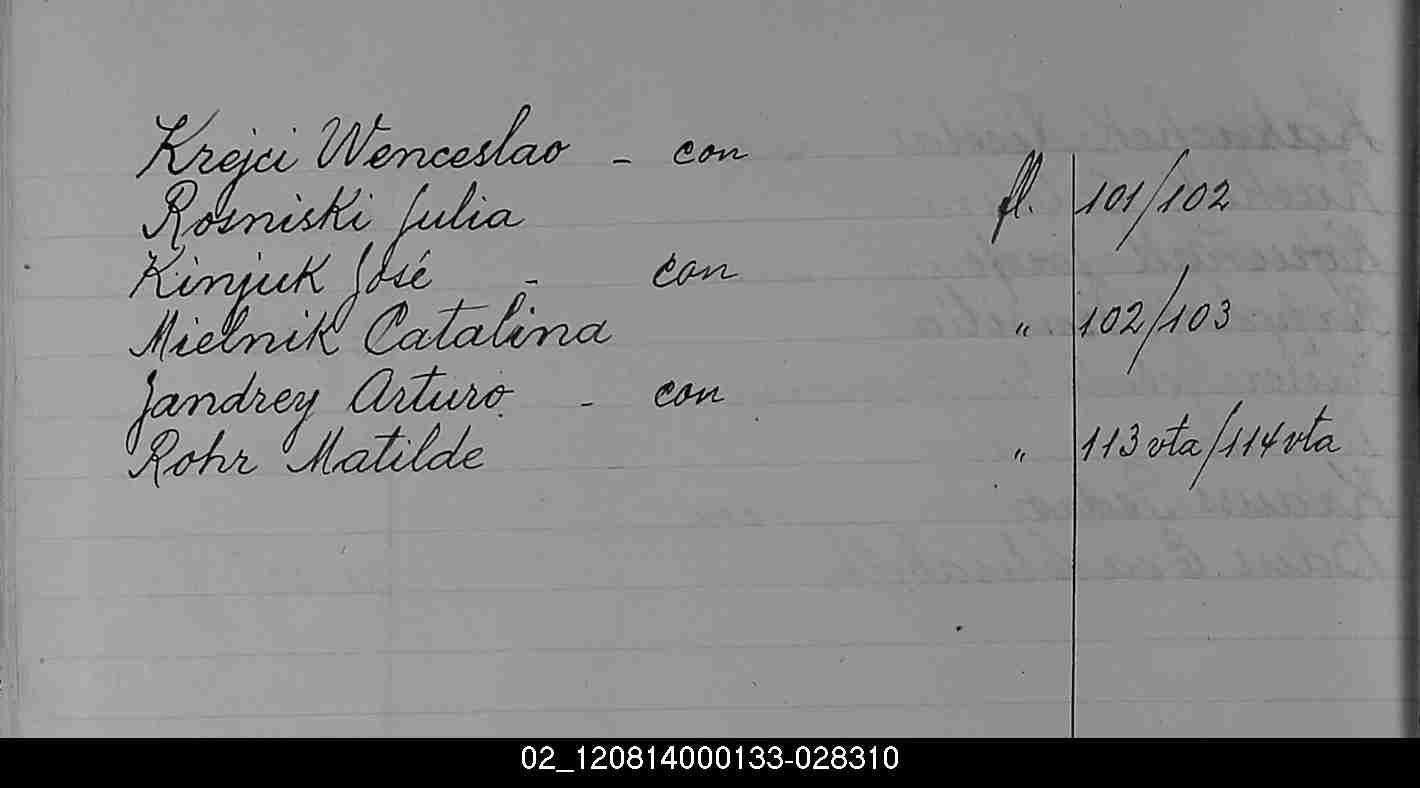 Krejci Wenceslao - con
Rosniski Julia fl. 101/102
Kinjuk José - con
Mielnik Catalina " 102/103
Jandrey Arturo - con
Rohr Matilde " 113 vta/114 vta
02_120814000133-028310